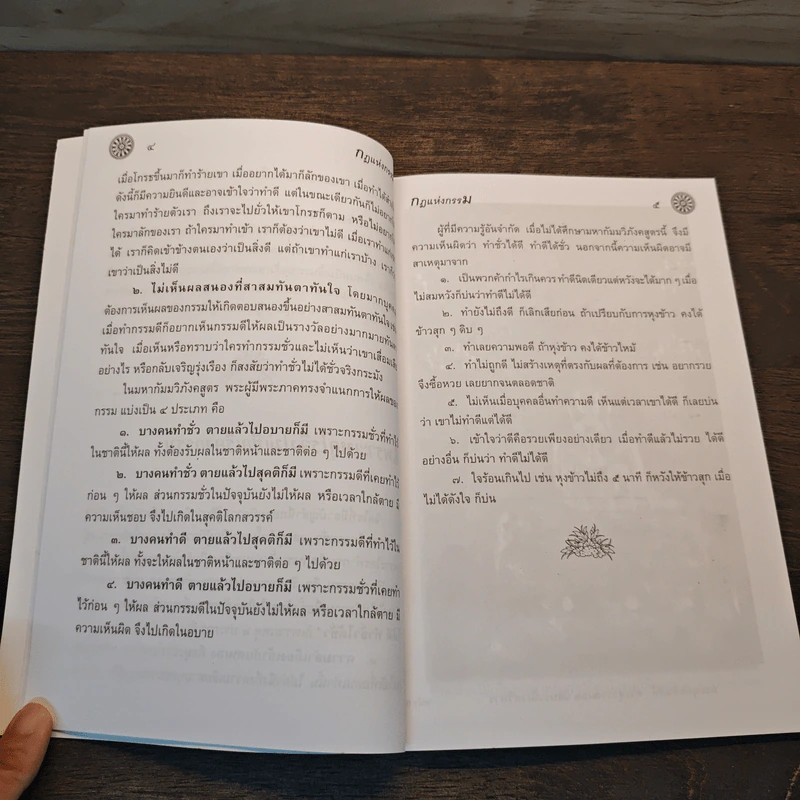 ๔
กฎแห่งกรรม
เมื่อโกรธขึ้นมาก็ทำร้ายเขา เมื่ออยากได้มาก็ลักของเขา เมื่อทำได้สำ
ดังนี้ก็มีความยินดีและอาจเข้าใจว่าทำดี แต่ในขณะเดียวกันก็ไม่อยา
ใครมาทำร้ายตัวเรา ถึงเราจะไปยั่วให้เขาโกรธก็ตาม หรือไม่อยา
ใครมาลักของเรา ถ้าใครมาทำเข้า เราก็ต้องว่าเขาไม่ดี เมื่อเราทำแก่
ได้ เราก็คิดเข้าข้างตนเองว่าเป็นสิ่งดี แต่ถ้าเขาทำแก่เราบ้าง เรา
เขาว่าเป็นสิ่งไม่ดี
๒. ไม่เห็นผลสนองที่สาสมทันตาทันใจ โดยมากบุคค
ต้องการเห็นผลของกรรมให้เกิดตอบสนองขึ้นอย่างสาสมทันตาทันใจ
เมื่อทำกรรมดีก็อยากเห็นกรรมดีให้ผลเป็นรางวัลอย่างมากมายทัน
ทันใจ เมื่อเห็นหรือทราบว่าใครทำกรรมชั่วและไม่เห็นว่าเขาเสื่อม
อย่างไร หรือกลับเจริญรุ่งเรือง ก็สงสัยว่าทำชั่วไม่ได้ชั่วจริงกระมัง
ในมหากัมมวิภังคสูตร พระผู้มีพระภาคทรงจำแนกการให้ผลขอ
กรรม แบ่งเป็น ๔ ประเภท คือ
๑. บางคนทำชั่ว ตายแล้วไปอบายก็มี เพราะกรรมชั่วที่ทำไว้
ในชาตินี้ให้ผล ทั้งต้องรับผลในชาติหน้าและชาติต่อ ๆ ไปด้วย
๒. บางคนทำชั่ว ตายแล้วไปสุคติก็มี เพราะกรรมดีที่เคยทำไว้
ก่อน ๆ ให้ผล ส่วนกรรมชั่วในปัจจุบันยังไม่ให้ผล หรือเวลาใกล้ตาย มี
ความเห็นชอบ จึงไปเกิดในสุคติโลกสวรรค์
๓. บางคนทำดี ตายแล้วไปสุคติก็มี เพราะกรรมดีที่ทำไว้ใน
ชาตินี้ให้ผล ทั้งจะให้ผลในชาติหน้าและชาติต่อ ๆ ไปด้วย
๔. บางคนทำดี ตายแล้วไปอบายก็มี เพราะกรรมชั่วที่เคยทำ
ไว้ก่อน ๆ ให้ผล ส่วนกรรมดีในปัจจุบันยังไม่ให้ผล หรือเวลาใกล้ตาย มี
ความเห็นผิด จึงไปเกิดในอบาย
กฎแห่งกรรม
๕
ผู้ที่มีความรู้อันจำกัด เมื่อไม่ได้ศึกษามหากัมมวิภังคสูตรนี้ จึงมี
ความเห็นผิดว่า ทำชั่วได้ดี ทำดีได้ชั่ว นอกจากนี้ความเห็นผิดอาจมี
สาเหตุมาจาก
๑. เป็นพวกค้ากำไรเกินควร ทำดีนิดเดียวแต่หวังจะได้มาก ๆ เมื่อ
ไม่สมหวังก็บ่นว่าทำดีไม่ได้ดี
๒. ทำยังไม่ถึงดี ก็เลิกเสียก่อน ถ้าเปรียบกับการหุงข้าว คงได้
ข้าวสุก ๆ ดิบ ๆ
๓. ทำเลยความพอดี ถ้าหุงข้าว คงได้ข้าวไหม้
๔. ทำไม่ถูกดี ไม่สร้างเหตุที่ตรงกับผลที่ต้องการ เช่น อยากรวย
จึงซื้อหวย เลยยากจนตลอดชาติ
๕. ไม่เห็นเมื่อบุคคลอื่นทำความดี เห็นแต่เวลาเขาได้ดี ก็เลยบ่น
ว่า เขาไม่ทำดีแต่ได้ดี
๖. เข้าใจว่าดีคือรวยเพียงอย่างเดียว เมื่อทำดีแล้วไม่รวย ได้ดี
อย่างอื่น ก็บ่นว่า ทำดีไม่ได้ดี
๗. ใจร้อนเกินไป เช่น หุงข้าวไม่ถึง ๕ นาที ก็หวังให้ข้าวสุก เมื่อ
ไม่ได้ดังใจ ก็บ่น